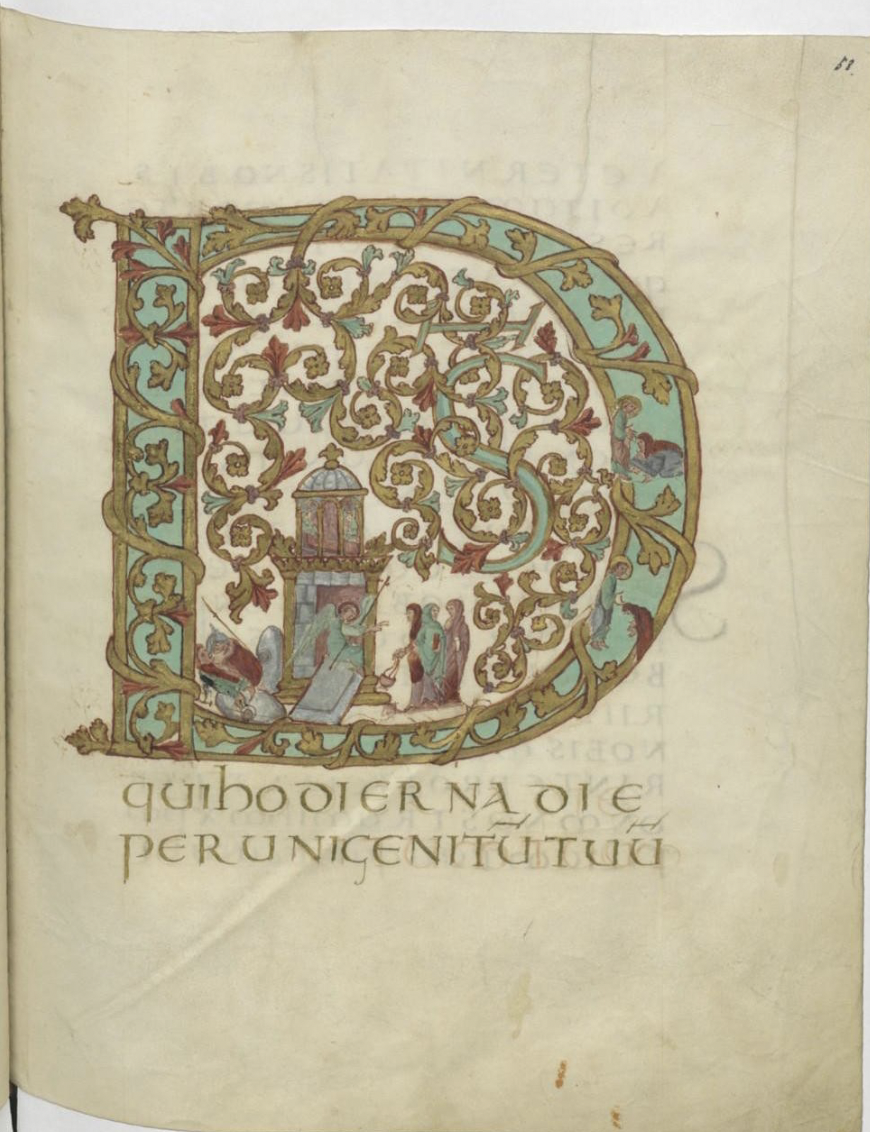 58
D̄S̄
quihodIERNA dIE
PERUNIGENITŪTUŪ